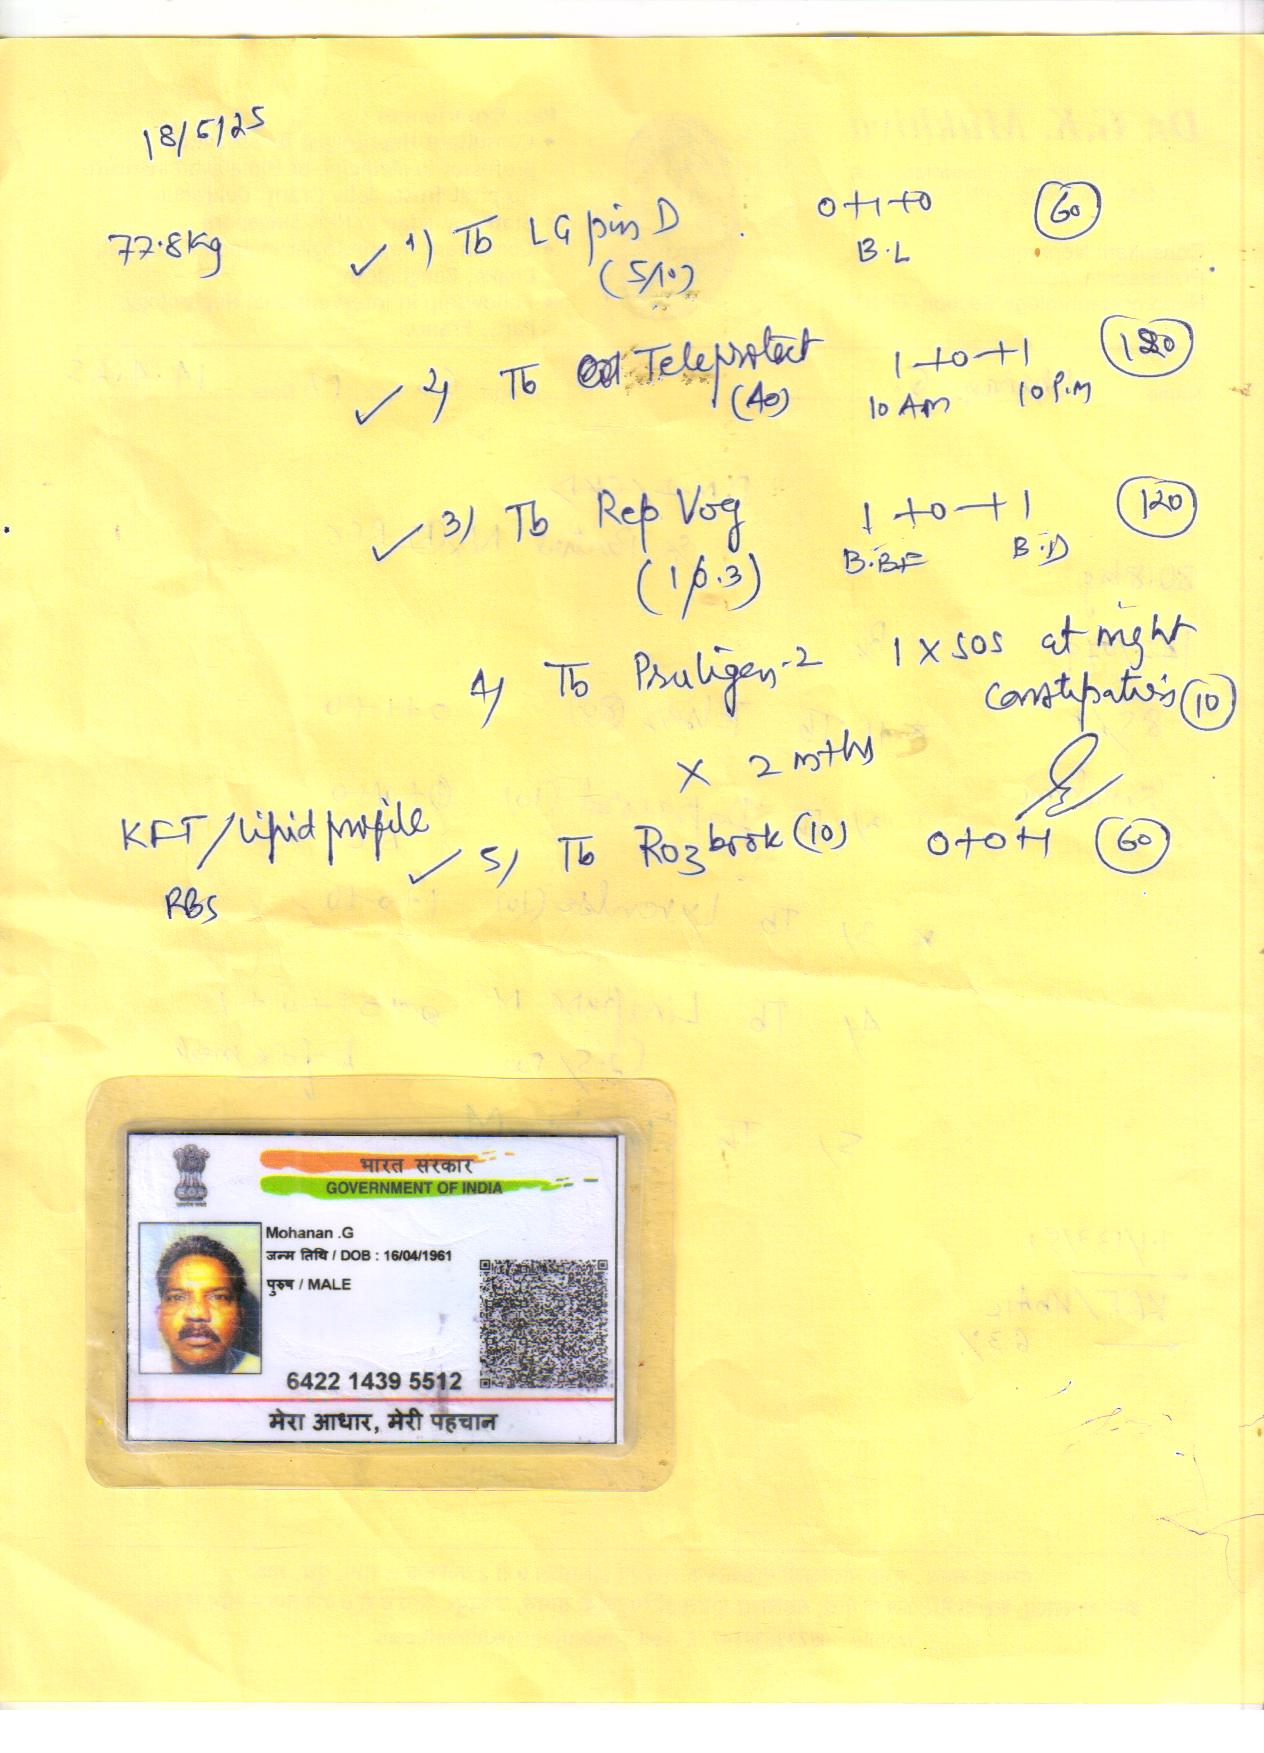 18/5/25
77.8kg
1) Tb LG pin D 0+1+0 60
(5/10) B.L
2) Tb Teleprotect 1+0+1 120
(40) 10 AM 10 P.M
3) Tb Rep Vog 1+0+1 120
(1/0.3) B.BF B.D
4) Tb Pruligen-2 1 X SOS at night
constipation 10
X 2 mths
KFT/lipid profile
5) Tb Rozbrook (10) 0+0+1 60
RBS
भारत सरकार
GOVERNMENT OF INDIA
Mohanan .G
जन्म तिथि / DOB : 16/04/1961
पुरुष / MALE
6422 1439 5512
मेरा आधार, मेरी पहचान